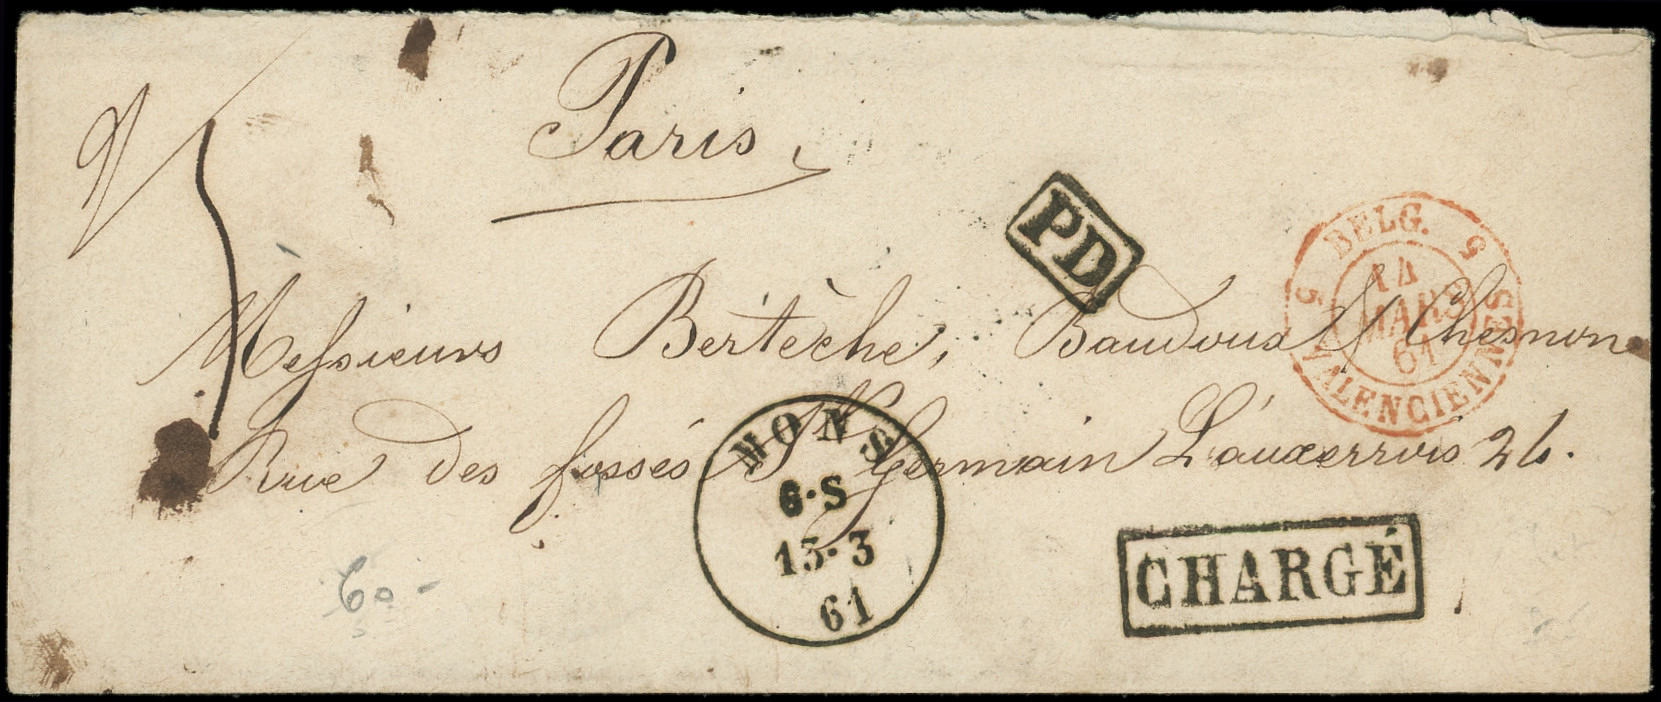 Paris,
PD
BELG. 5 VALENCIENNES 5
14
MARS
61
Messieurs Bertèche, Baudoux Chesnon
Rue des fossés St Germain L'auxerrois 26.
MONS
6·S
13·3
61
CHARGÉ
60 -